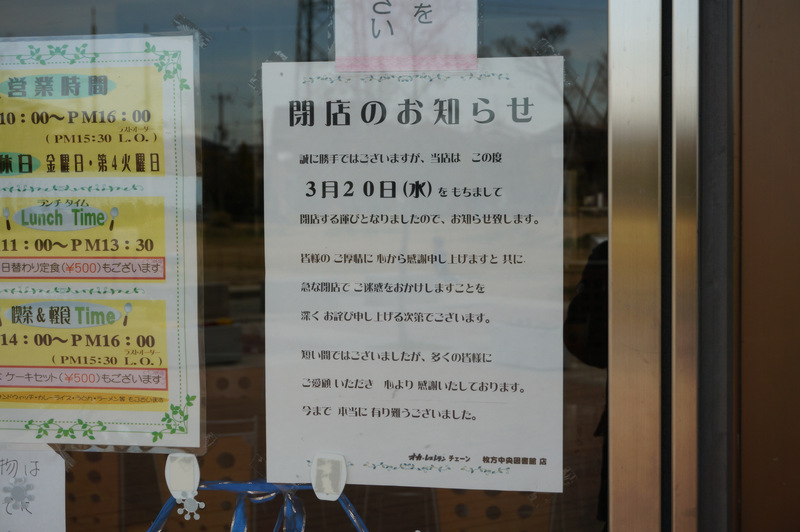 を
さい
営業時間
10:00〜PM16:00
ラストオーダー
(PM15:30 L.O.)
休日 金曜日・第4火曜日
ランチ タイム
Lunch Time
11:00〜PM13:30
日替わり定食(¥500)もございます
喫茶&軽食 Time
14:00〜PM16:00
ラストオーダー
(PM15:30 L.O.)
ケーキセット(¥500)もございます
物は
閉店のお知らせ
誠に勝手ではございますが、当店は この度
3月20日(水)をもちまして
閉店する運びとなりましたので、お知らせ致します。
皆様の ご厚情に 心から感謝申し上げますと 共に
急な閉店で ご迷惑をおかけしますことを
深く お詫び申し上げる次第でございます。
短い間ではございましたが、多くの皆様に
ご愛顧 いただき 心より 感謝いたしております。
今まで 本当に 有り難うございました。
チェーン 枚方中央図書館 店